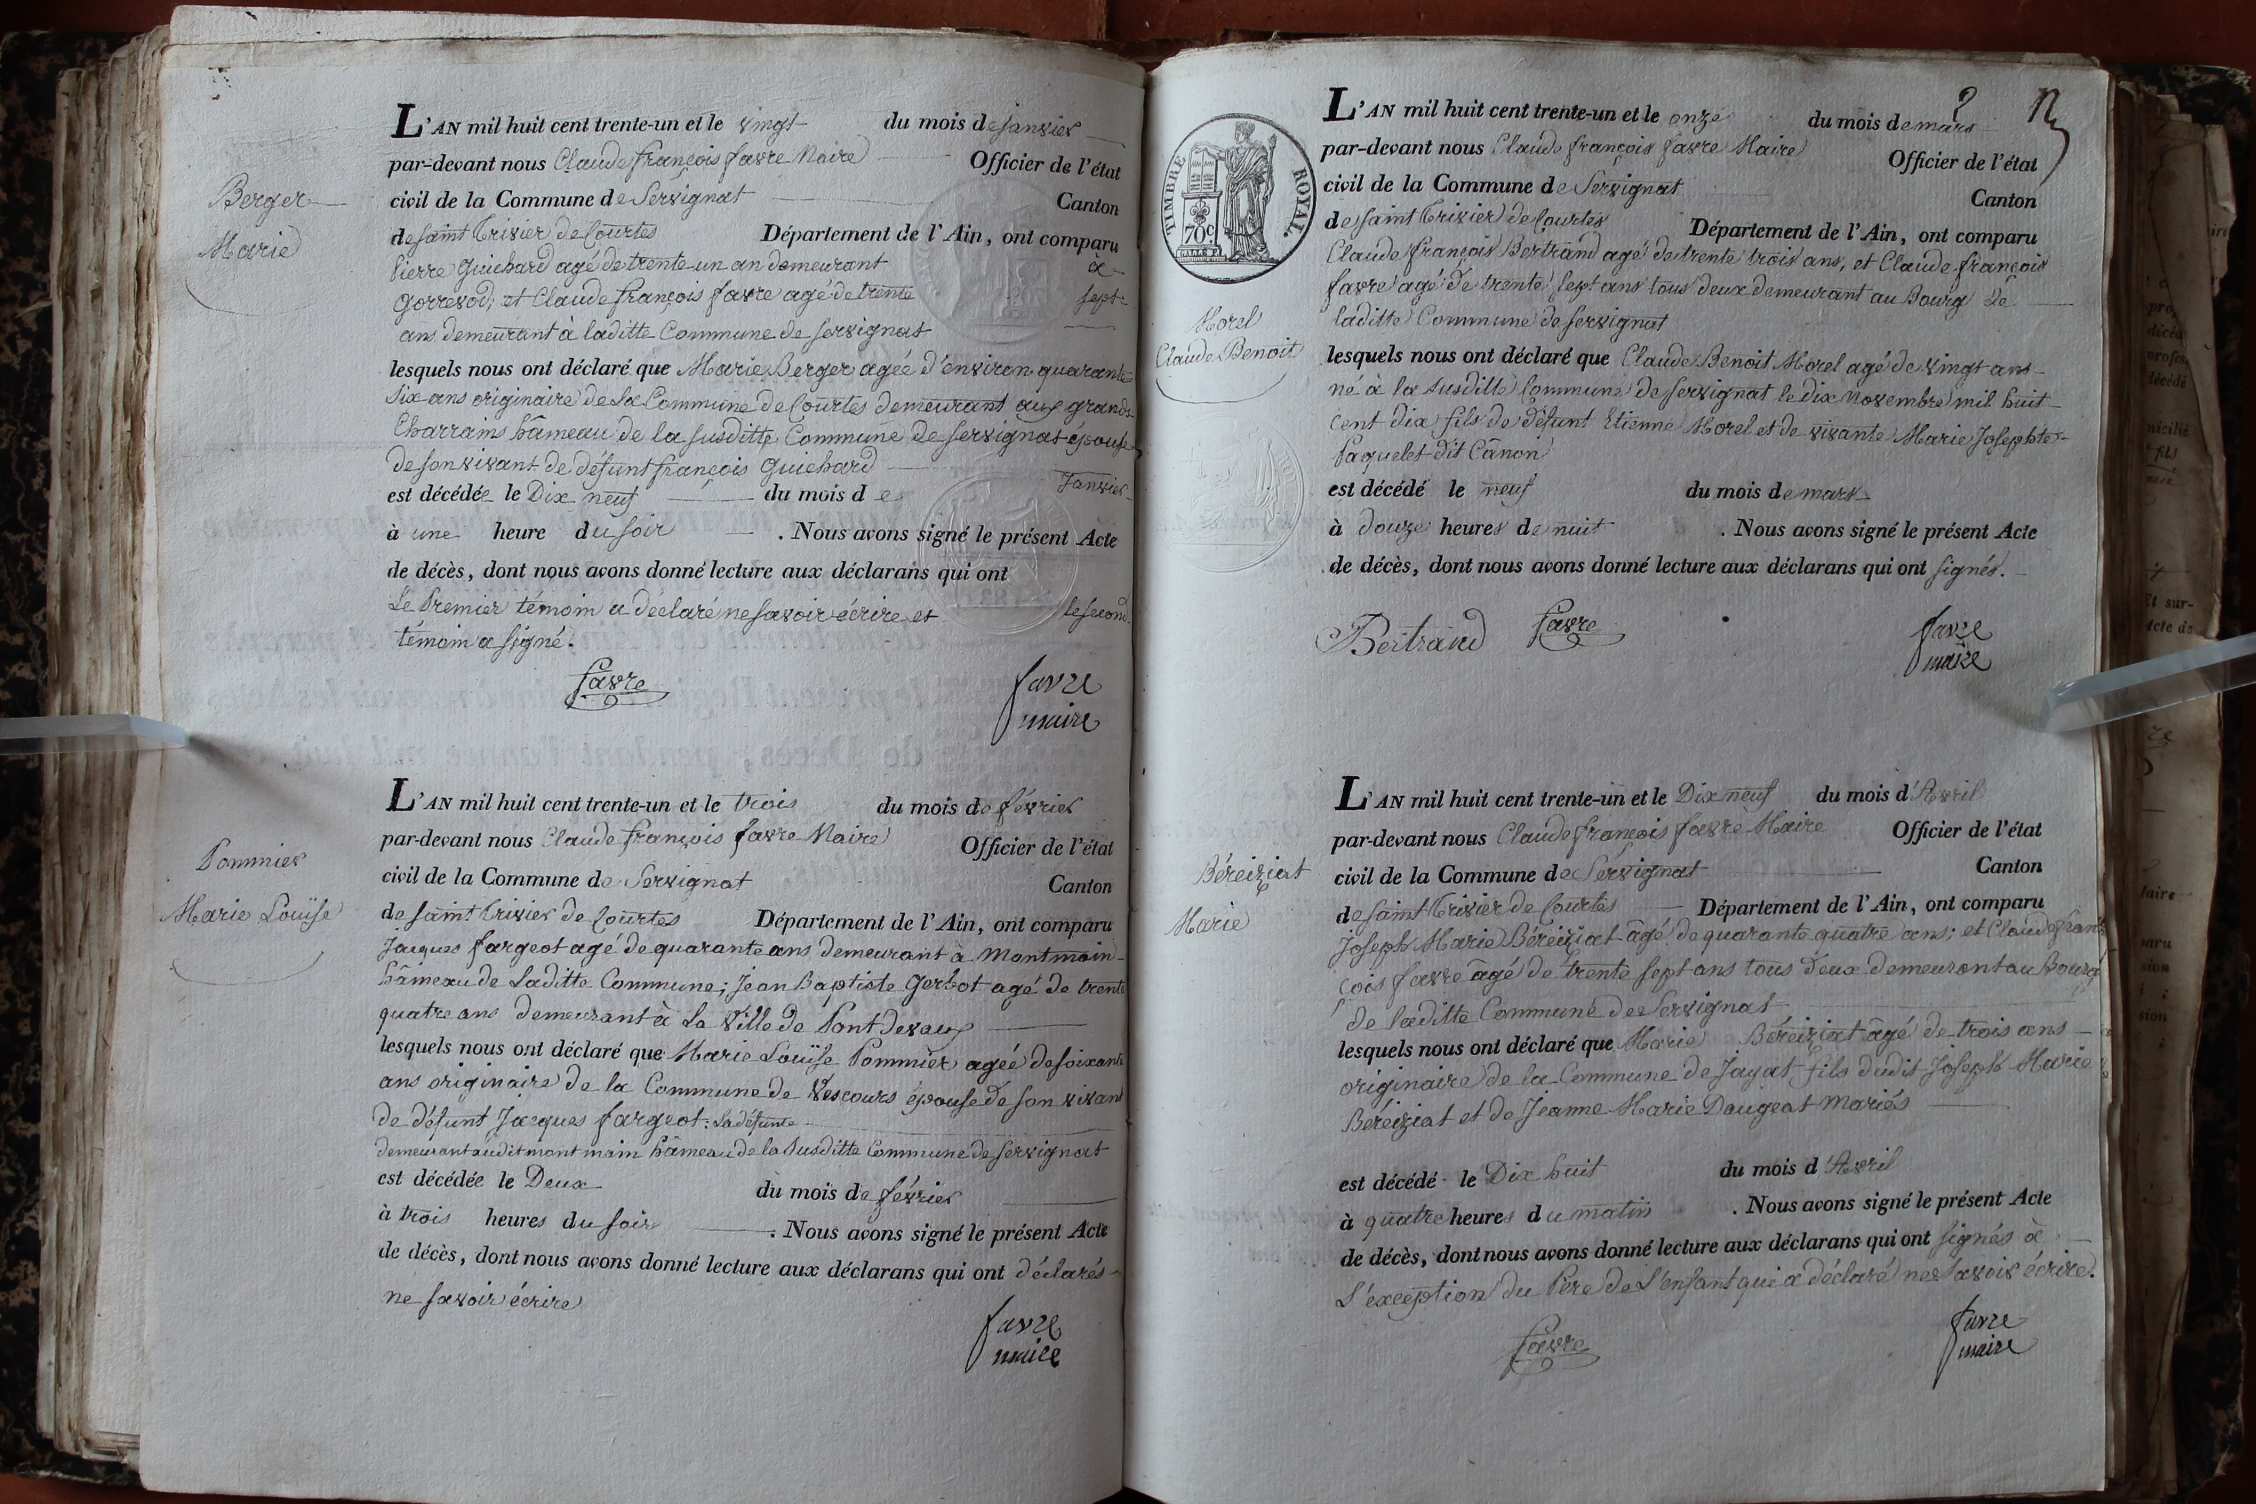 Berger
Marie
L'AN mil huit cent trente-un et le vingt du mois de janvier
par-devant nous Claude françois favre Maire Officier de l'état
civil de la Commune de Servignat Canton
de saint Trivier de Courtes Département de l'Ain, ont comparu
Pierre Guichard agé de trente-un an demeurant à
Gorrevod, et Claude françois favre agé de trente sept
ans demeurant à laditte Commune de servignat
lesquels nous ont déclaré que Marie Berger agée d'environ quarante
six ans originaire de La Commune de Courtes demeurant aux grands
Charrains hâmeau de la susditte Commune de servignat épouse
de son vivant de défunt françois Guichard
est décédée le Dix neuf du mois de Janvier
à une heure du soir . Nous avons signé le présent Acte
de décès, dont nous avons donné lecture aux déclarans qui ont
Le Premier témoin a déclaré ne savoir écrire et le second
témoin a signé.
favre
favre
maire
Pommier
Marie Louïse
L'AN mil huit cent trente-un et le trois du mois de février
par-devant nous Claude françois favre Maire Officier de l'état
civil de la Commune de Servignat Canton
de saint Trivier de Courtes Département de l'Ain, ont comparu
Jacques fargeot agé de quarante ans demeurant à Montmain
hâmeau de Laditte Commune; Jean Baptiste Gerbot agé de trente
quatre ans demeurant à La Ville de Pont Devaux
lesquels nous ont déclaré que Marie Louïse Pommier agée de soixante
ans originaire de la Commune de Vescours épouse de son vivant
de défunt Jacques fargeot: La défunte
demeurant audit mont main hâmeau de la susditte Commune de servignat
est décédée le Deux du mois de février
à trois heures du soir . Nous avons signé le présent Acte
de décès, dont nous avons donné lecture aux déclarans qui ont déclarés
ne savoir écrire
favre
maire
2
TIMBRE ROYAL.
70c
Morel
Claude Benoit
L'AN mil huit cent trente-un et le onze du mois de mars
par-devant nous Claude françois favre Maire Officier de l'état
civil de la Commune de Servignat Canton
de saint Trivier de Courtes Département de l'Ain, ont comparu
Claude françois Bertrand agé de trente trois ans, et Claude françois
favre agé de trente sept ans tous deux demeurant au Bourg de
laditte Commune de servignat
lesquels nous ont déclaré que Claude Benoit Morel agé de vingt ans
né à la susditte Commune de servignat le dix Novembre mil huit
cent dix fils de défunt Etienne Morel et de vivante Marie Josephte
Paquelet dit Cânon
est décédé le neuf du mois de mars
à douze heures de nuit . Nous avons signé le présent Acte
de décès, dont nous avons donné lecture aux déclarans qui ont signés.
Bertrand favre
favre
maire
Béreiziat
Marie
L'AN mil huit cent trente-un et le Dix neuf du mois d'Avril
par-devant nous Claude françois favre Maire Officier de l'état
civil de la Commune de Servignat Canton
de saint Trivier de Courtes Département de l'Ain, ont comparu
Joseph Marie Béreiziat âgé de quarante quatre ans; et Claude fran
çois favre âgé de trente sept ans tous deux demeurant au Bourg
de laditte Commune de Servignat
lesquels nous ont déclaré que Marie Béreiziat âgé de trois ans
originaire de la Commune de Jayat fils dudit Joseph Marie
Béreiziat et de Jeanne Marie Daugeat Mariés
est décédé le Dix huit du mois d'Avril
à quatre heures du matin . Nous avons signé le présent Acte
de décès, dont nous avons donné lecture aux déclarans qui ont signés à
L'exception du Père de L'enfant qui a déclaré ne savoir écrire.
favre
favre
maire